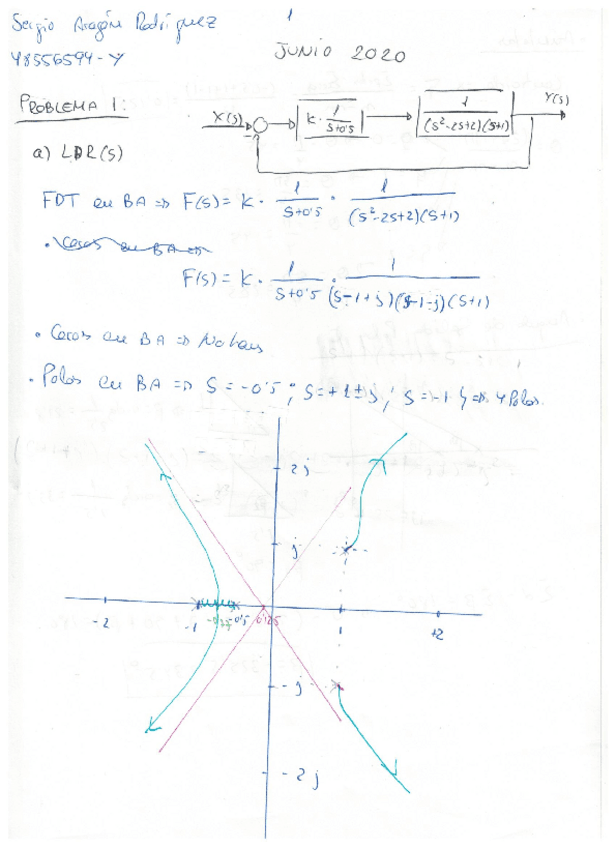 Sergio Aragón Rodríguez 1
48556594-Y JUNIO 2020
PROBLEMA 1:
X(s) K · 1/(s+0'5) 1/((s²-2s+2)(s+1)) Y(s)
a) LDR(s)
FDT en BA => F(s) = K · 1/(s+0'5) · 1/((s²-2s+2)(s+1))
· Ceros en BA =>
F(s) = K · 1/(s+0'5) · 1/((s-1+j)(s-1-j)(s+1))
· Ceros en BA => No hay
· Polos en BA => S = -0'5 ; S = +1±j ; S = -1 } => 4 Polos.
2j
j
-2 -1 -0'5 0'125 1 +2
-j
-2j